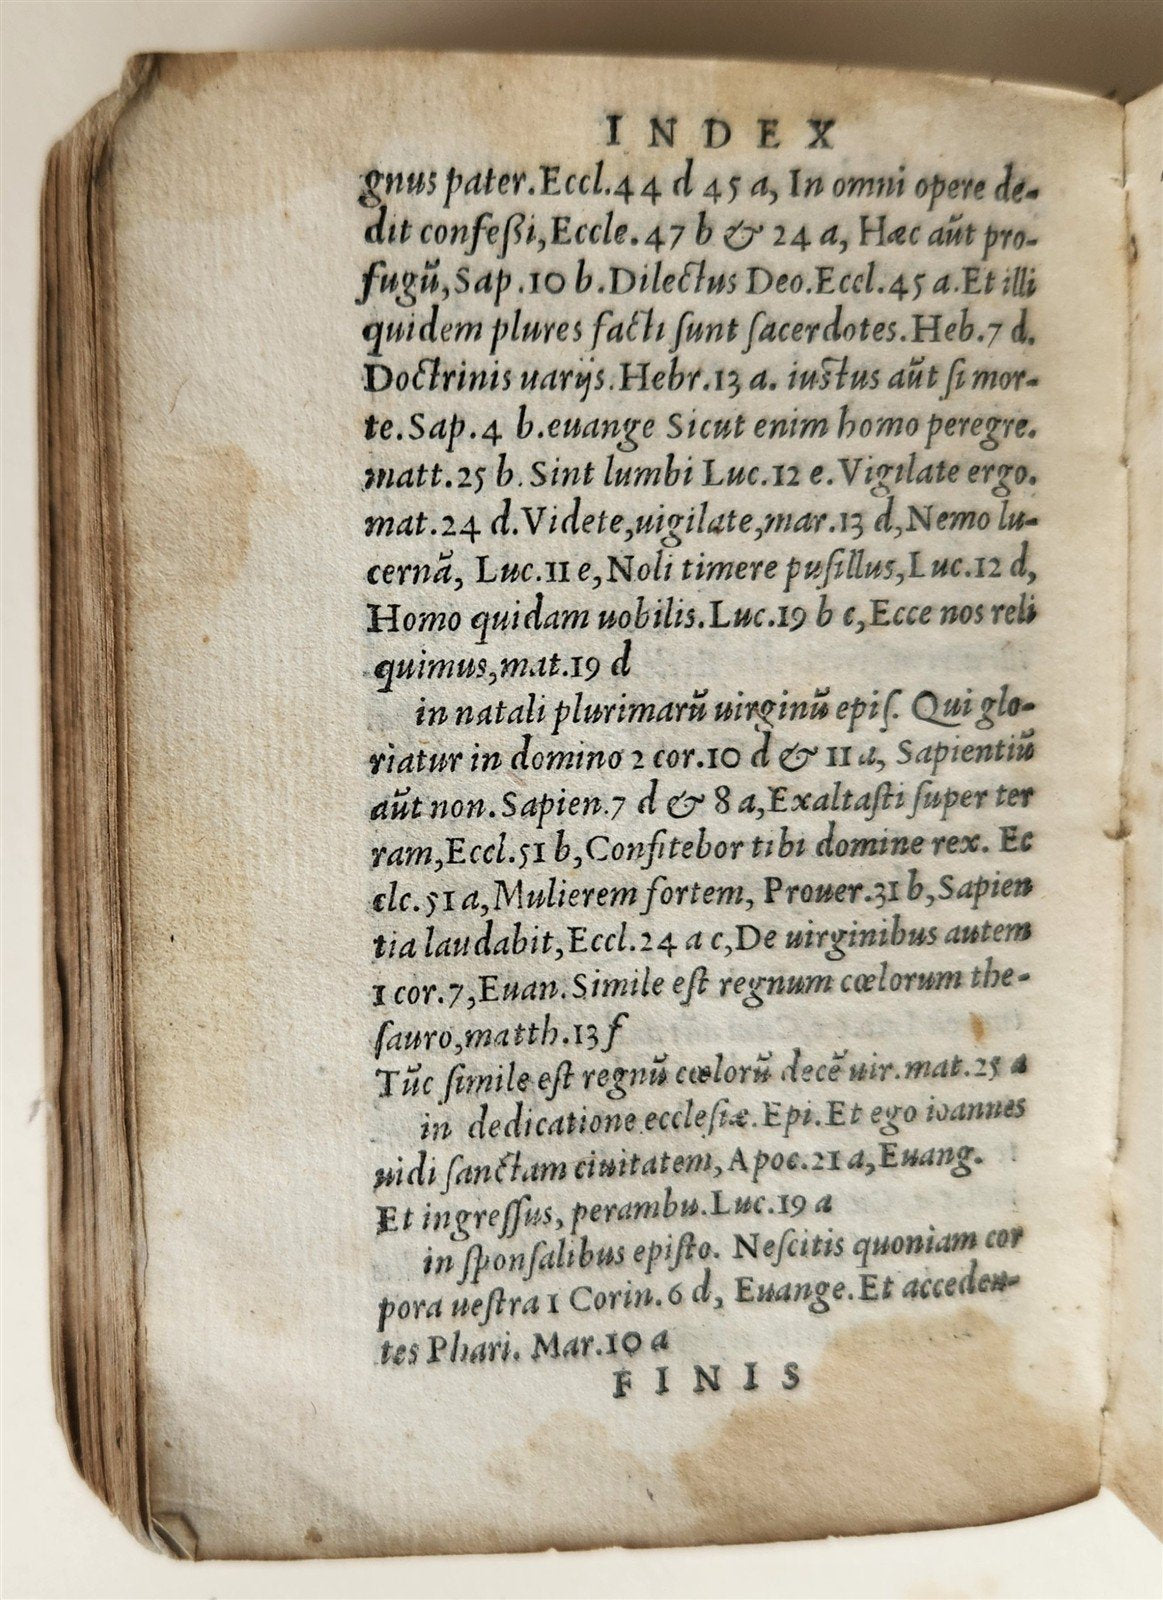 INDEX
gnus pater.Eccl.44 d 45 a, In omni opere de-
dit confeßi,Eccle.47 b & 24 a, Hæc aūt pro-
fugū,Sap.10 b.Dilectus Deo.Eccl.45 a.Et illi
quidem plures facti ſunt ſacerdotes.Heb.7 d.
Doctrinis uarijs.Hebr.13 a. iustus aūt ſi mor-
te.Sap.4 b.euange Sicut enim homo peregre.
matt.25 b. Sint lumbi Luc.12 e.Vigilate ergo.
mat.24 d.Videte,uigilate,mar.13 d,Nemo lu-
cernā, Luc.11 e,Noli timere puſillus,Luc.12 d,
Homo quidam uobilis.Luc.19 b c,Ecce nos reli
quimus,mat.19 d
in natali plurimarū uirginū epiſ. Qui glo-
riatur in domino 2 cor.10 d & 11 a, Sapientiū
aūt non.Sapien.7 d & 8 a,Exaltaſti ſuper ter
ram,Eccl.51 b,Confitebor tibi domine rex. Ec
clc.51 a,Mulierem fortem, Prouer.31 b,Sapien
tia laudabit,Eccl.24 a c,De uirginibus autem
1 cor.7,Euan.Simile eſt regnum cœlorum the-
ſauro,matth.13 f
Tūc ſimile eſt regnū cœlorū decē uir.mat.25 a
in dedicatione eccleſiæ.Epi.Et ego ioannes
uidi ſanctam ciuitatem,Apoc.21 a,Euang.
Et ingreſſus, perambu.Luc.19 a
in ſponſalibus epiſto. Neſcitis quoniam cor
pora ueſtra 1 Corin.6 d, Euange.Et acceden-
tes Phari. Mar.10 a
FINIS